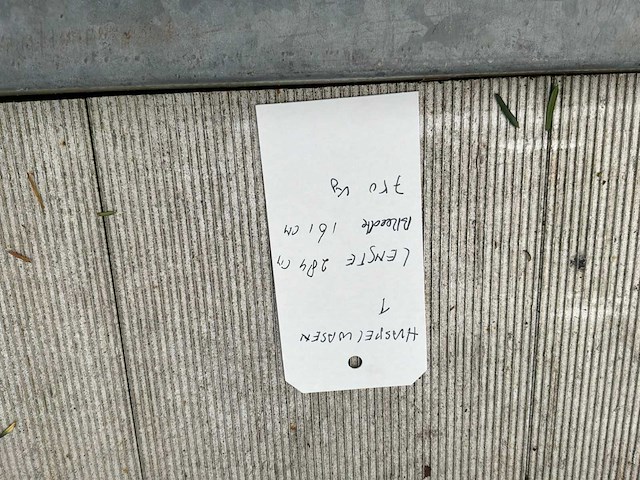 HASPELWAGEN
1
LENGTE 284 cm
Breedte 161 cm
750 kg